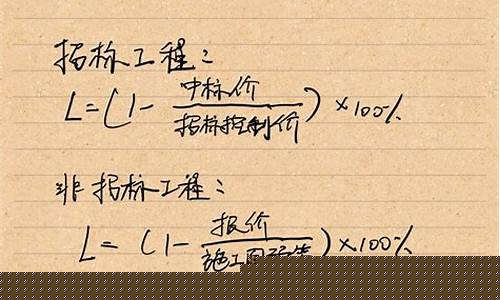 招标工程：
L=(1-中标价/招标控制价)×100%
非招标工程：
L=(1-报价/施工图)×100%